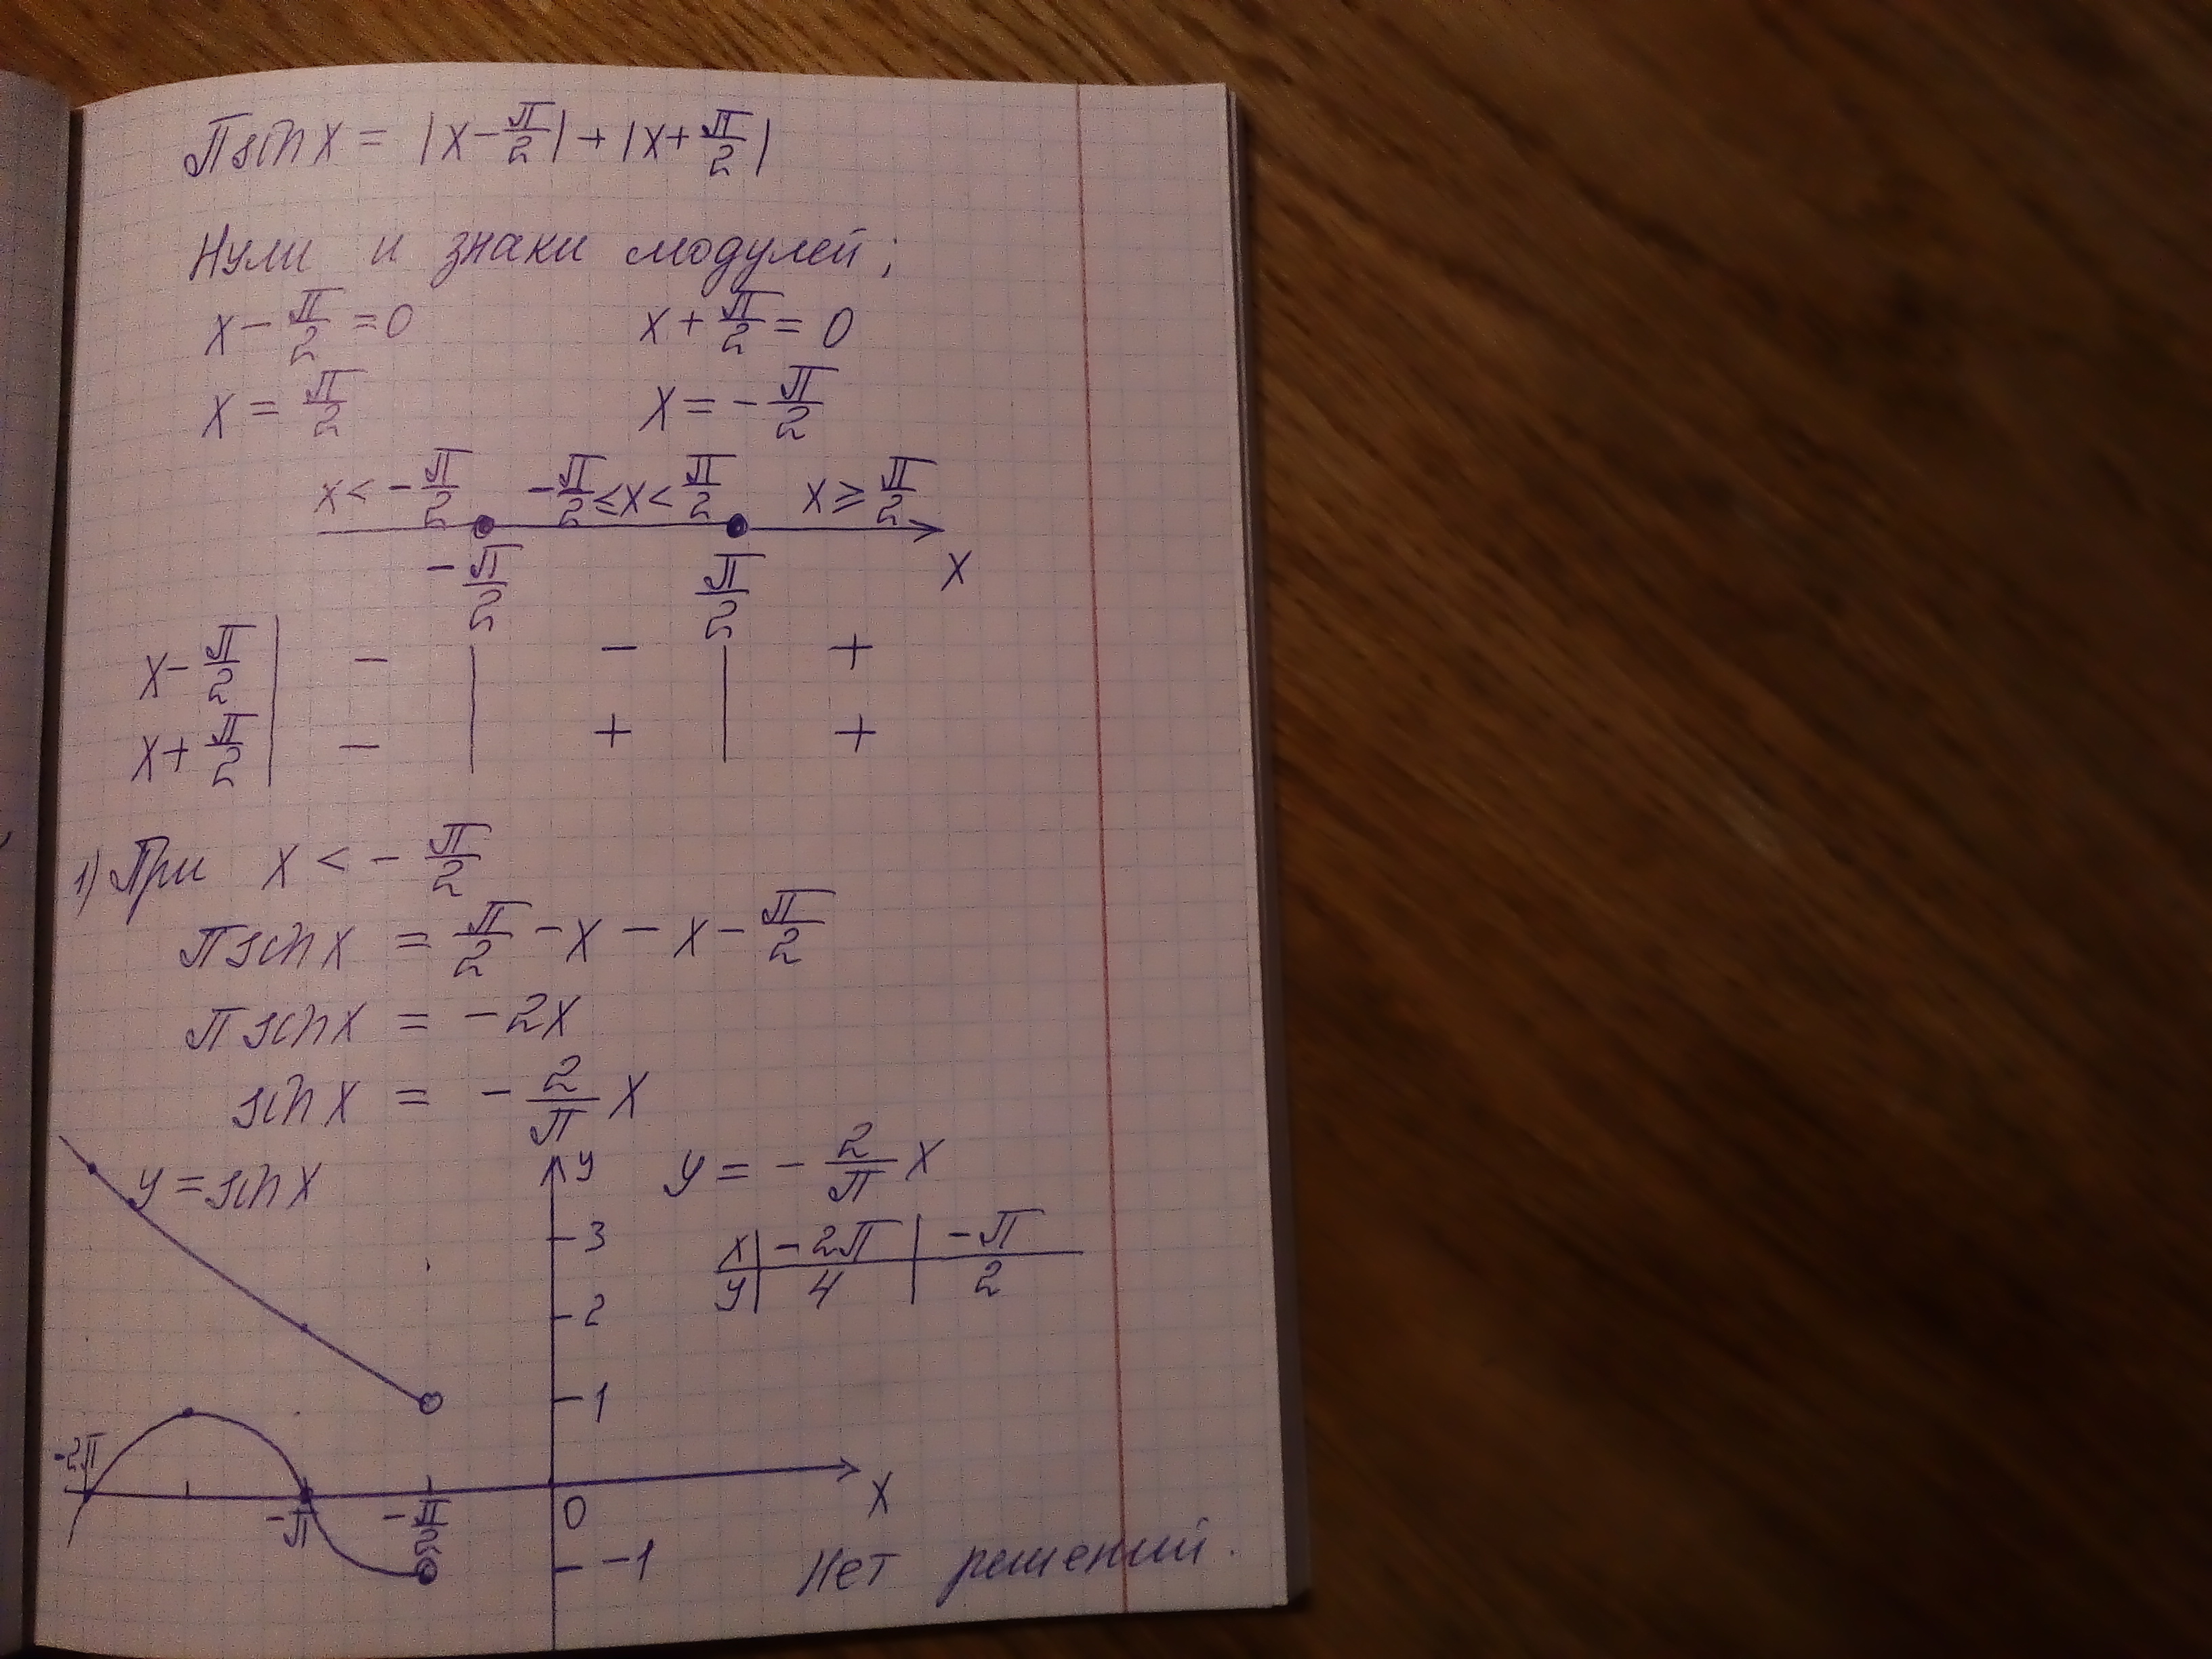 π sin x = |x - π/2| + |x + π/2|
Нули и знаки модулей;
x - π/2 = 0 x + π/2 = 0
x = π/2 x = - π/2
x < - π/2 - π/2 ≤ x < π/2 x ≥ π/2
- π/2 π/2 x
x - π/2 | - | - | +
x + π/2 | - | + | +
1) При x < - π/2
π sin x = π/2 - x - x - π/2
π sin x = -2x
sin x = - 2/π x
y = sin x y y = - 2/π x
3 x | -2π | -π
2 y | 4 | 2
1
-2π -π - π/2 0 x
-1 Нет решений.